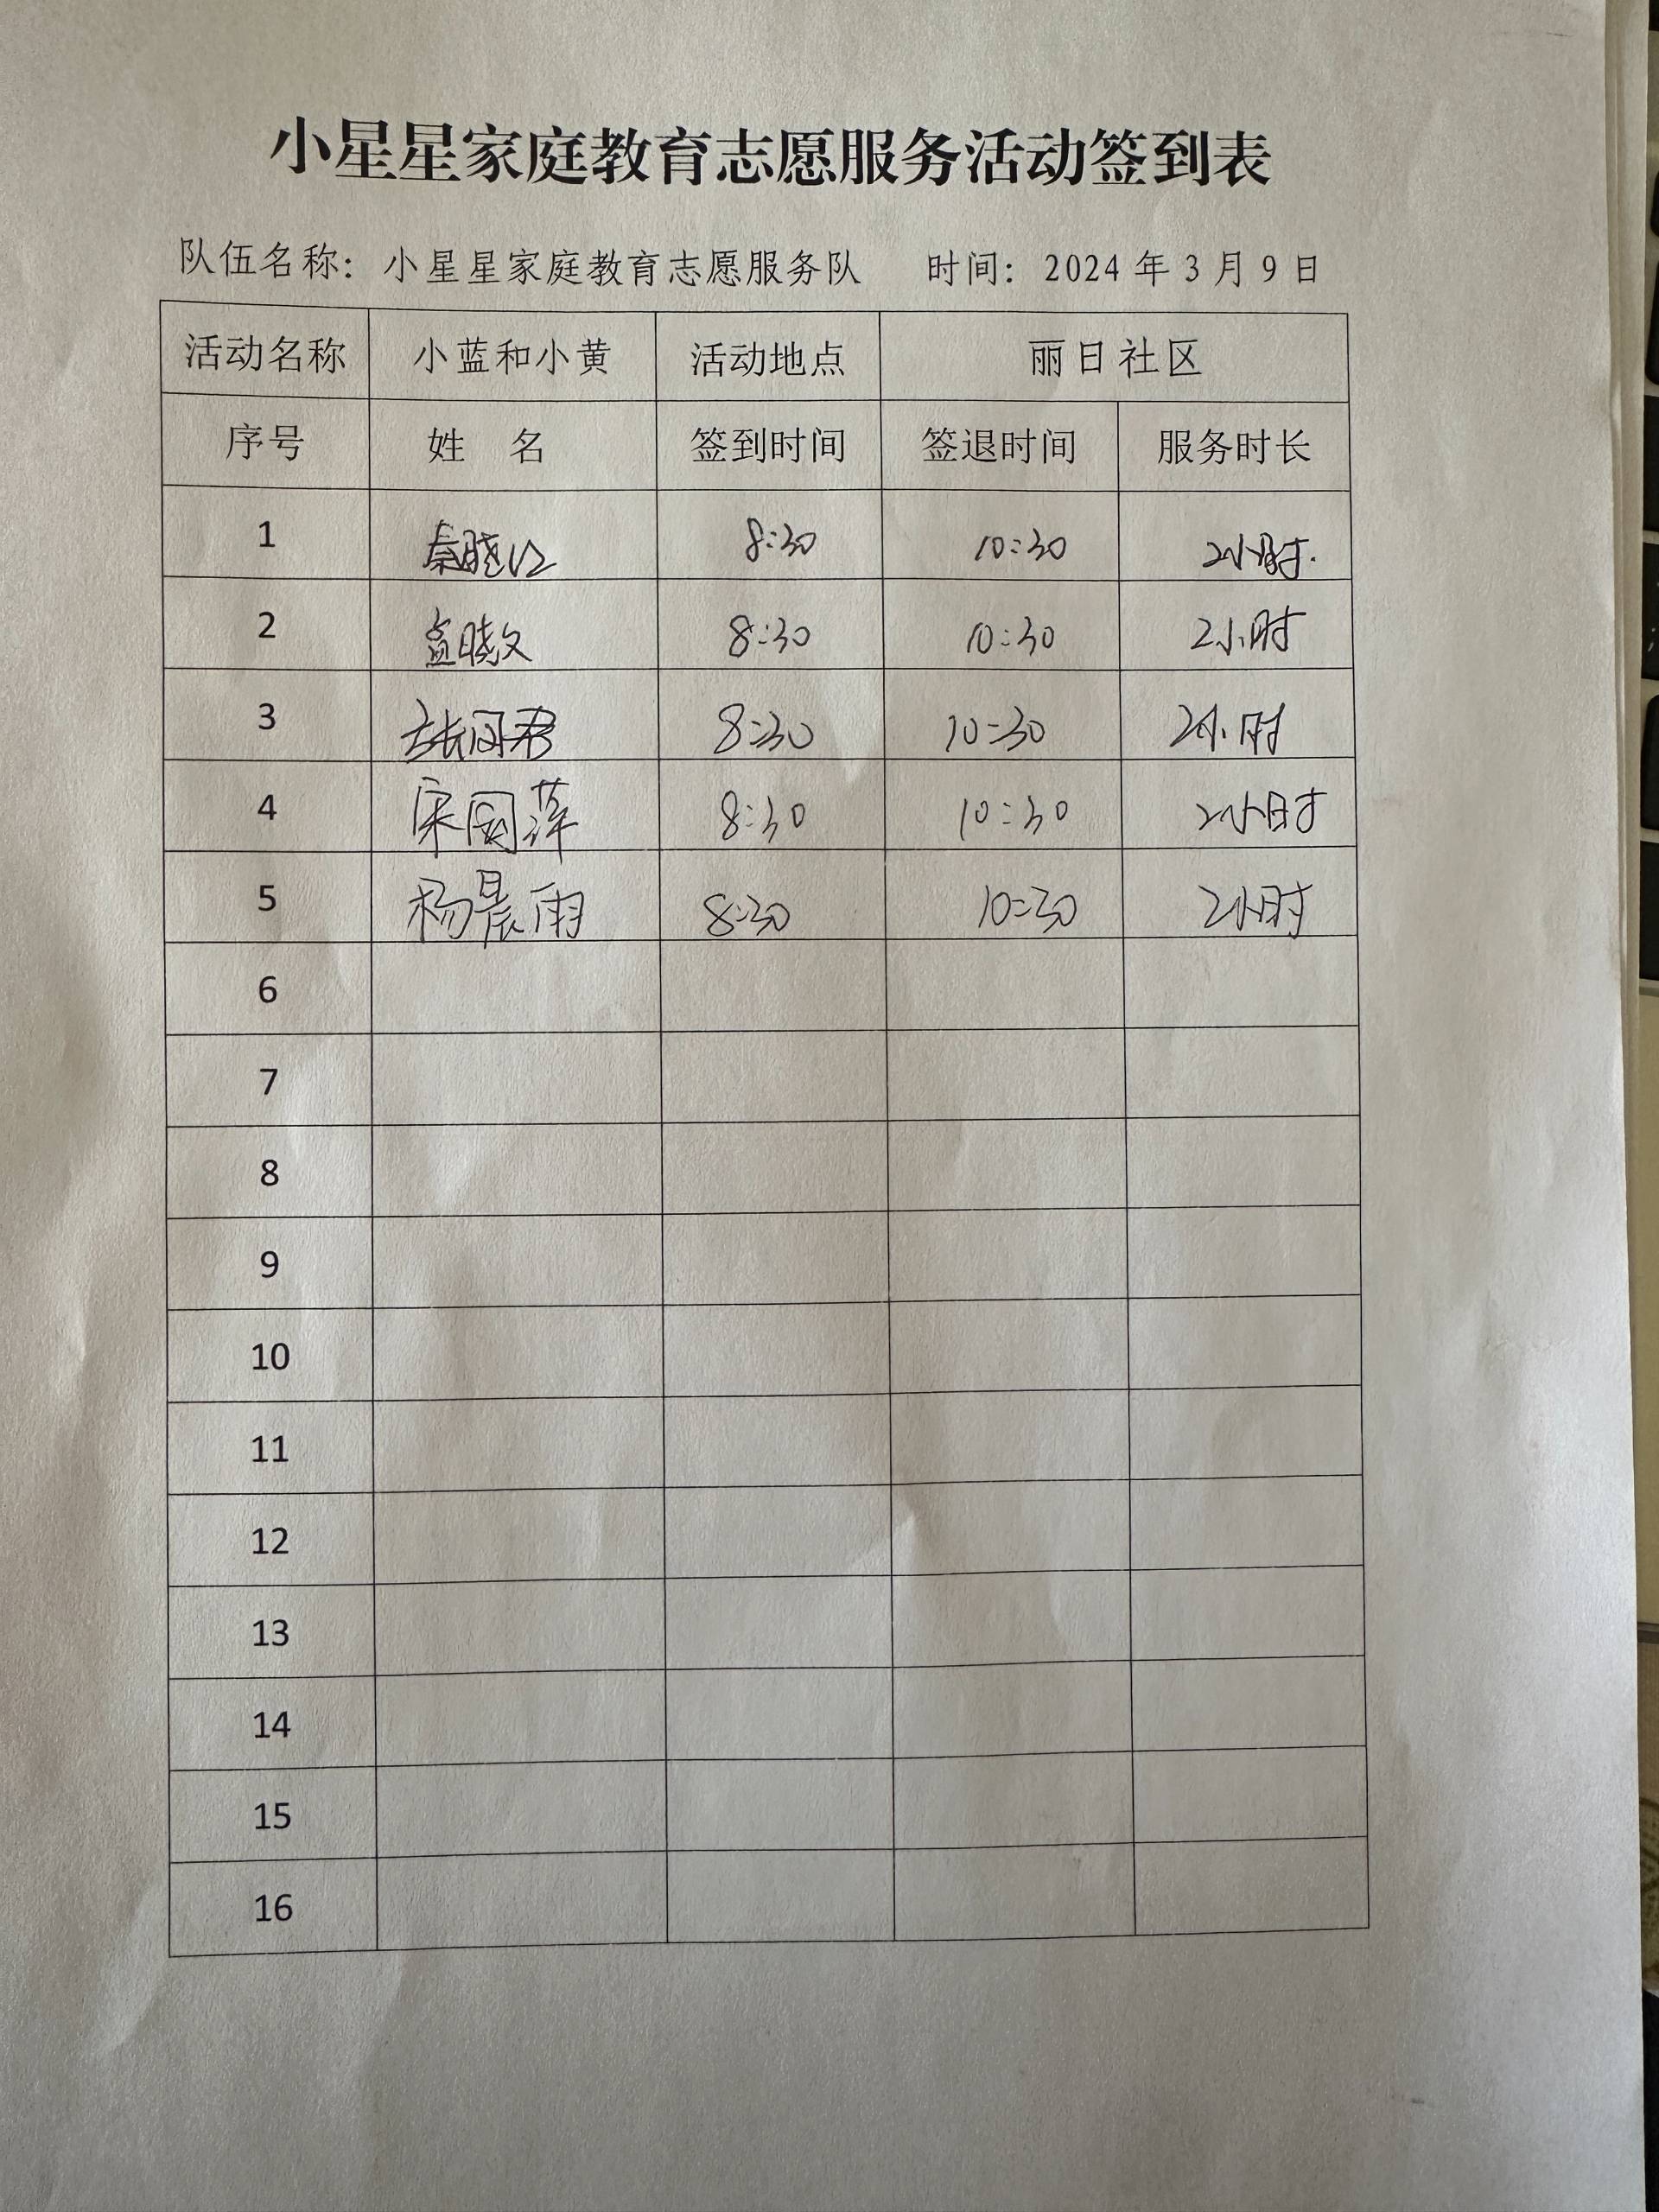 小星星家庭教育志愿服务活动签到表
队伍名称：小星星家庭教育志愿服务队 时间：2024年3月9日
活动名称 小蓝和小黄 活动地点 丽日社区
序号 姓名 签到时间 签退时间 服务时长
1 8:30 10:30 2小时.
2 孟晓文 8:30 10:30 2小时
3 8:30 10:30 2小时
4 宋国萍 8:30 10:30 2小时
5 杨晨雨 8:30 10:30 2小时
6
7
8
9
10
11
12
13
14
15
16